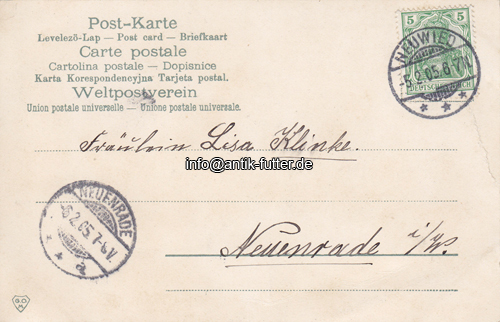 Post-Karte
Levelező-Lap — Post card — Briefkaart
Carte postale
Cartolina postale — Dopisnice
Karta Korespondencyjna Tarjeta postal.
Weltpostverein
Union postale universelle — Unione postale universale.
5 5
DEUTSCHES REICH
NEUWIED
-5.2.05.6-7N.
Fräulein Lisa Klinke.
info@antik-futter.de
NEUENRADE
6.2.05.7-8V.
a
Neuenrade i/W.